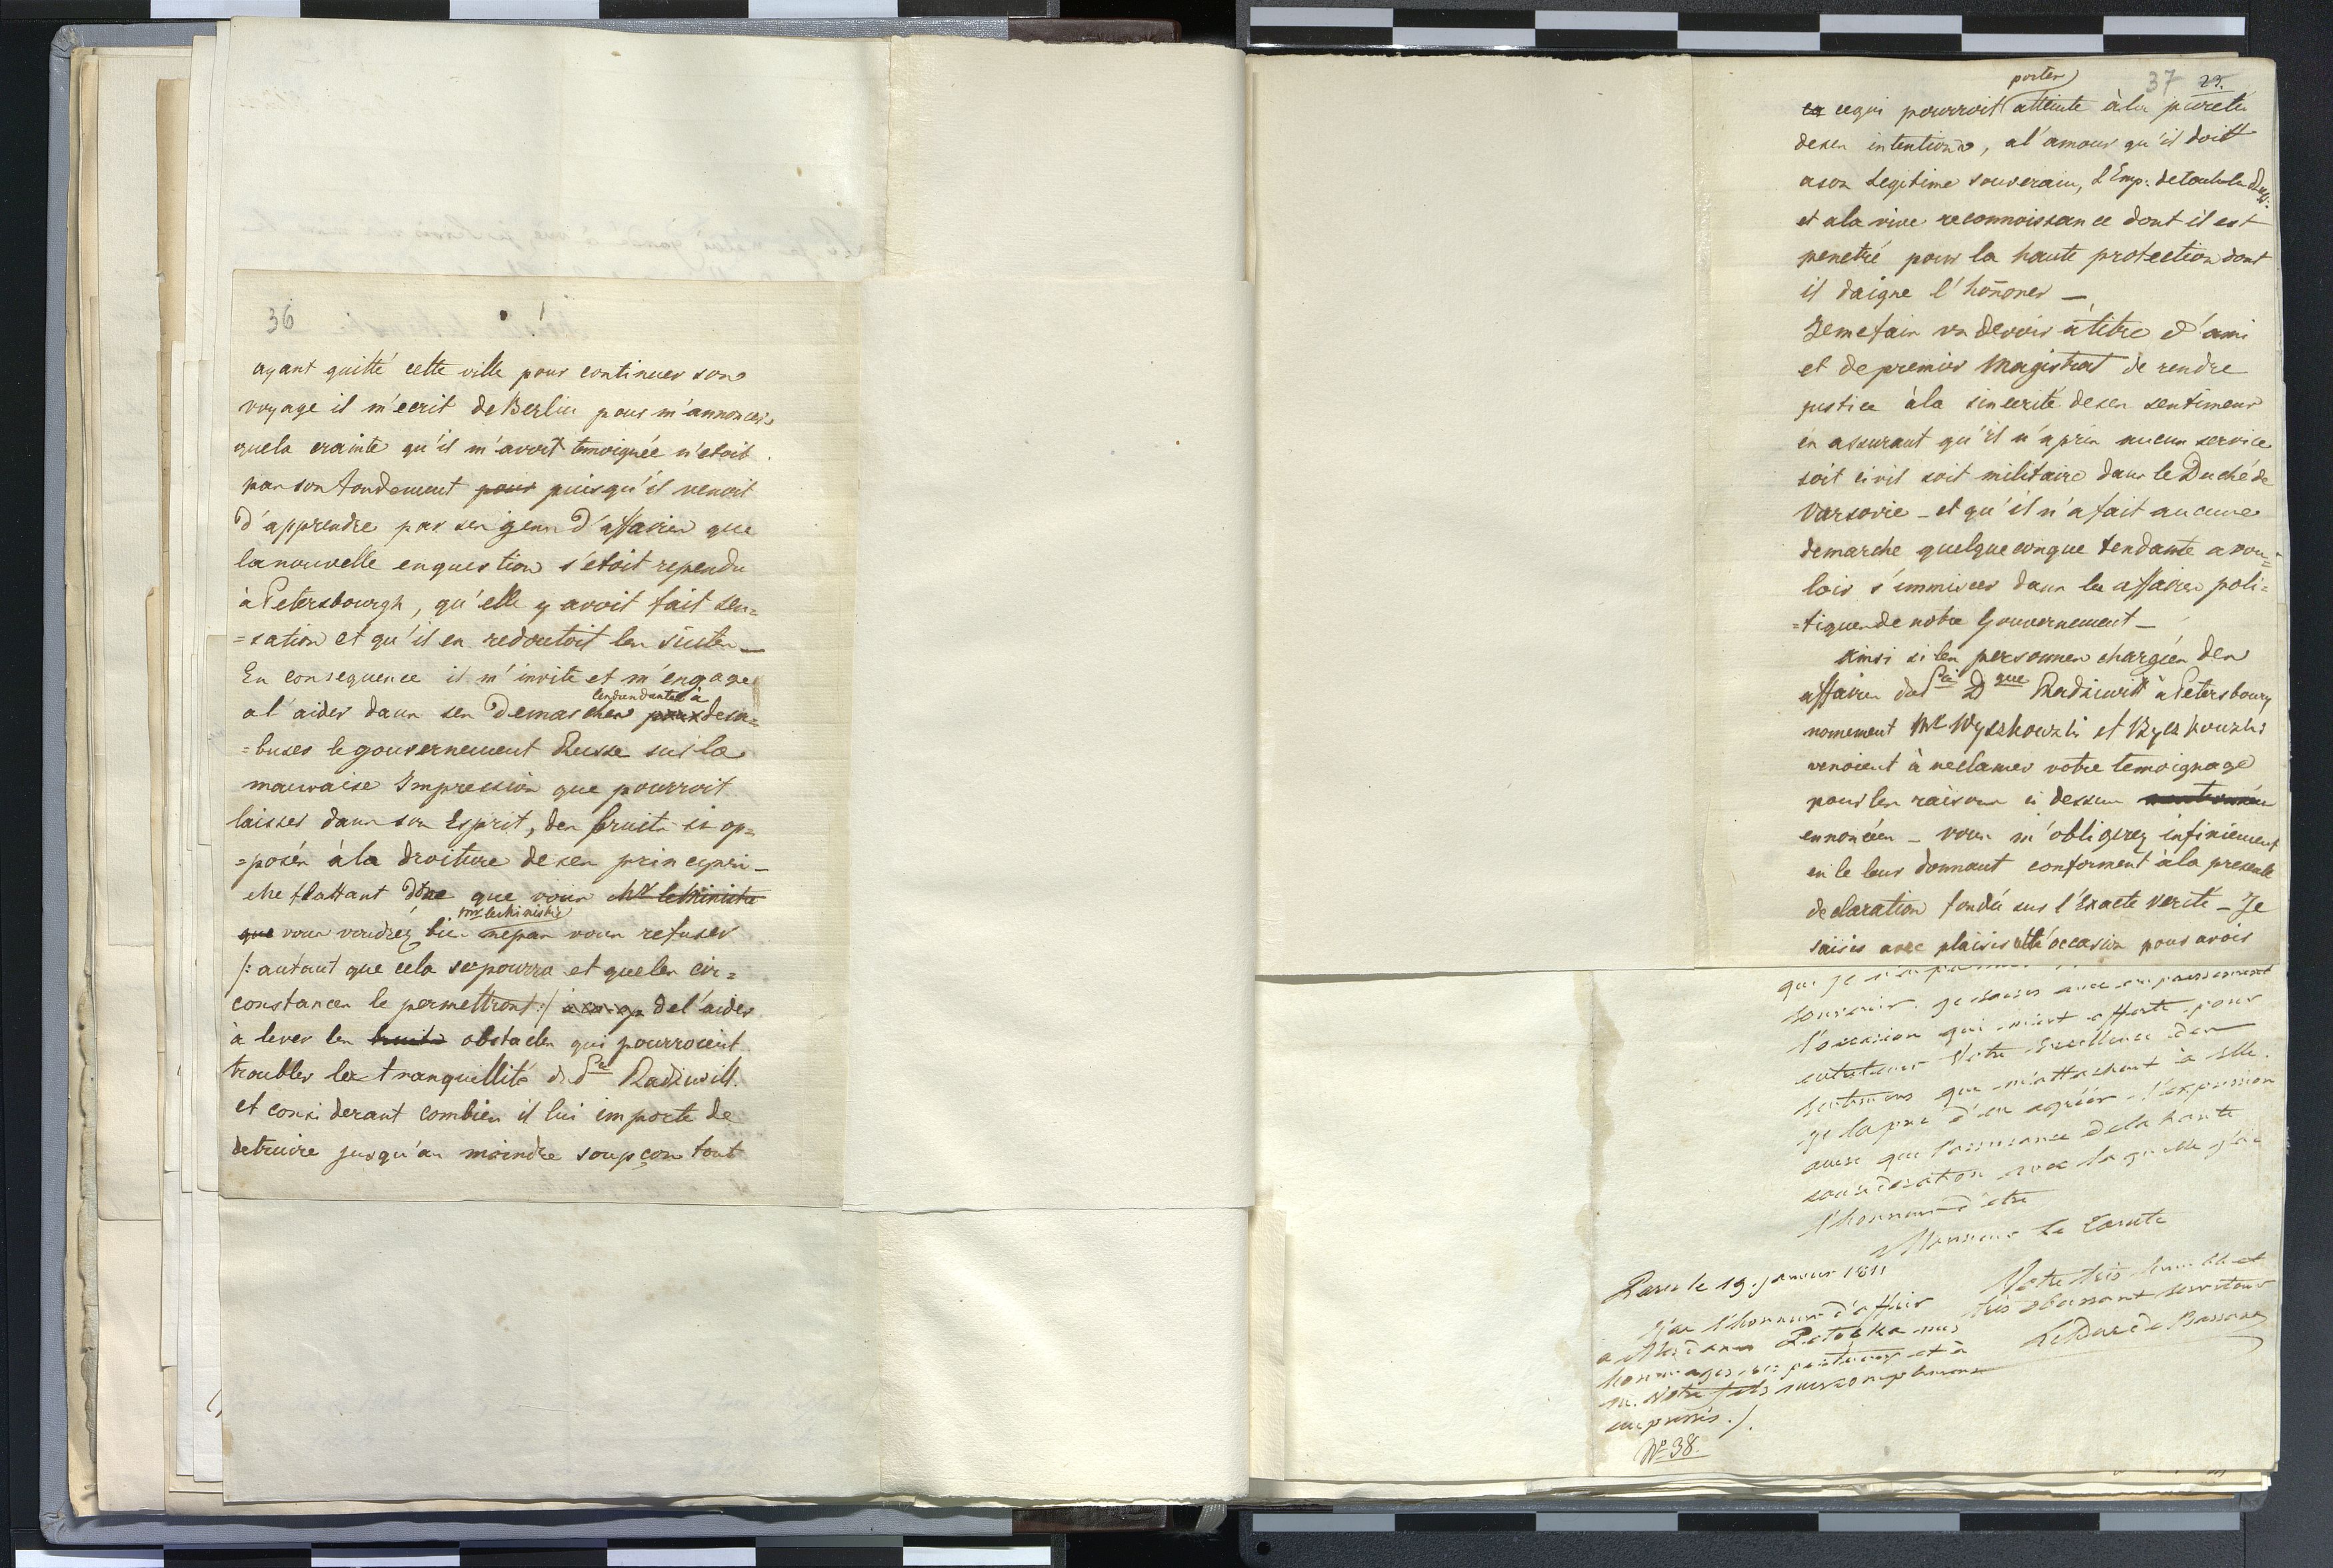 36
ayant quitté cette ville pour continuer son
voyage il m'ecrit de Berlin pour m'annoncer
que la crainte qu'il m'avoit temoignée n'etoit
pas son fondement pour puisqu'il venoit
d'apprendre par ses gens d'affaires que
la nouvelle en question s'etoit rependu
à Petersbourgh, qu'elle y avoit fait sen=
=sation et qu'il en redoutoit les suites —
En consequence il m'invite et m'engage
à
al'aider dans ses demarches pour desa=
=buser le gouvernement Russe sur la
mauvaise Impression que pourroit
laisser dans son Esprit, des bruits si op=
=posés à la droiture de ses principes —
Me flattant donc que vous Mr le Ministre
Mr le Ministre
que vous voudréz bien ne pas vous refuser
/: autant que cela se pourra et que les cir=
constances le permettront :/ de l'aider
à lever les bruits obstacles qui pourroient
troubler la tranquillité du Pce Radziwill.
et considerant combien il lui importe de
detruire jusqu'au moindre soupçon tout
37 27.
porter
ce cequi pourroit atteinte à la pureté
de ses intentions, a l'amour qu'il doit
a son Legitime souverain, L'Emp: de toutes les Russ:
et a la vive reconnoissance dont il est
penetré pour la haute protection dont
il daigne l'honorer —
Je me fais un devoir à titre d'ami
et de premier Magistrat de rendre
justice à la sincerité de ses sentimens
en assurant qu'il n'a pris aucun service
soit civil soit militaire dans le Duché de
Varsovie — et qu'il n'a fait aucune
demarche quelqueconque tendante a vou=
loir s'immiscer dans les affaires poli=
=tiques de notre Gouvernement —
Ainsi si les personnes chargées des
affaires du Pce Dque Radziwill à Petersbourg
nomement Mr Wyszkowski et
venoient à reclamer votre temoignage
pour les raisons ci dessus mentionnées
ennoncées — vous m'obligerez infiniement
en le leur donnant conforment à la presente
declaration fondée sur l'Exacte verité — Je
saisis avec plaisir cette occasion pour avoir
souvenir. Je saisis avec empressement
l'occasion qui m'est offerte pour
entretenir Votre Excellence des
sentimens qui m'attachent à Elle.
Je la prie d'en agréer l'expression
ainsi que l'assurance de la haute
consideration avec laquelle j'ai
l'honneur d'etre
Monsieur le Comte
Paris le 19. Janvier 1811
Votre très humble et
très obeissant serviteur
Le Duc de Bassano
J'ai l'honneur d'offrir
à Madame Potocka mes
hommages respectueux et à
M. Votre fils mes complimens
empressés ./.
No 38.